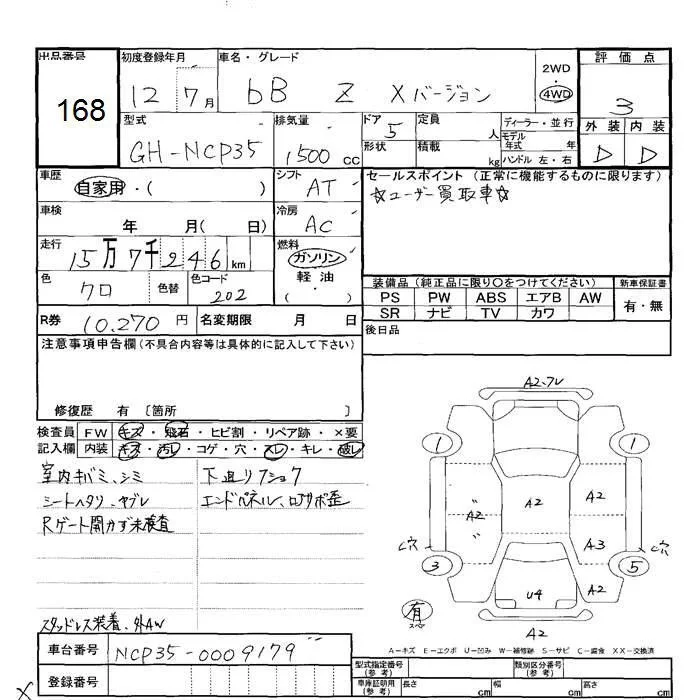 出品番号 168
初度登録年月 12 7月
車名・グレード bB Z Xバージョン
2WD・4WD
評価点 3
外装 D 内装 D
型式 GH-NCP35
排気量 1500cc
ドア 5
形状
定員 人
積載 kg
ディーラー・並行
モデル年式 年
ハンドル 左・右
車歴 自家用・( )
シフト AT
セールスポイント (正常に機能するものに限ります)
☆ユーザー買取車☆
車検 年 月( 日)
冷房 AC
走行 15万7千246km
燃料 ガソリン・軽油・( )
色 クロ 色替
色コード 202
装備品(純正品に限り○をつけてください) 新車保証書
PS PW ABS エアB AW 有・無
SR ナビ TV カワ
R券 10,270円 名変期限 月 日
後日品
注意事項申告欄(不具合内容等は具体的に記入して下さい)
修復歴 有〔箇所 〕
検査員記入欄
FW キズ・飛石・ヒビ割・リペア跡・×要
内装 キズ・汚レ・コゲ・穴・スレ・キレ・破レ
室内キバミ、シミ
シートヘタリ、ヤブレ
Rゲート開かず未検査
下廻リフショク
エンドパネル、ロアサポ歪
スタッドレス装着、外AW
A2、フレ
1 1
A2 A2 A2
A3
穴 穴
3 5
U4 A2
有 スペ
A2
A=キズ E=エクボ U=凹み W=補修跡 S=サビ C=腐食 XX=交換済
車台番号 NCP35-0009179
登録番号
型式指定番号(参考) 類別区分番号(参考)
車庫証明用(参考) 長さ cm 幅 cm 高さ cm
X